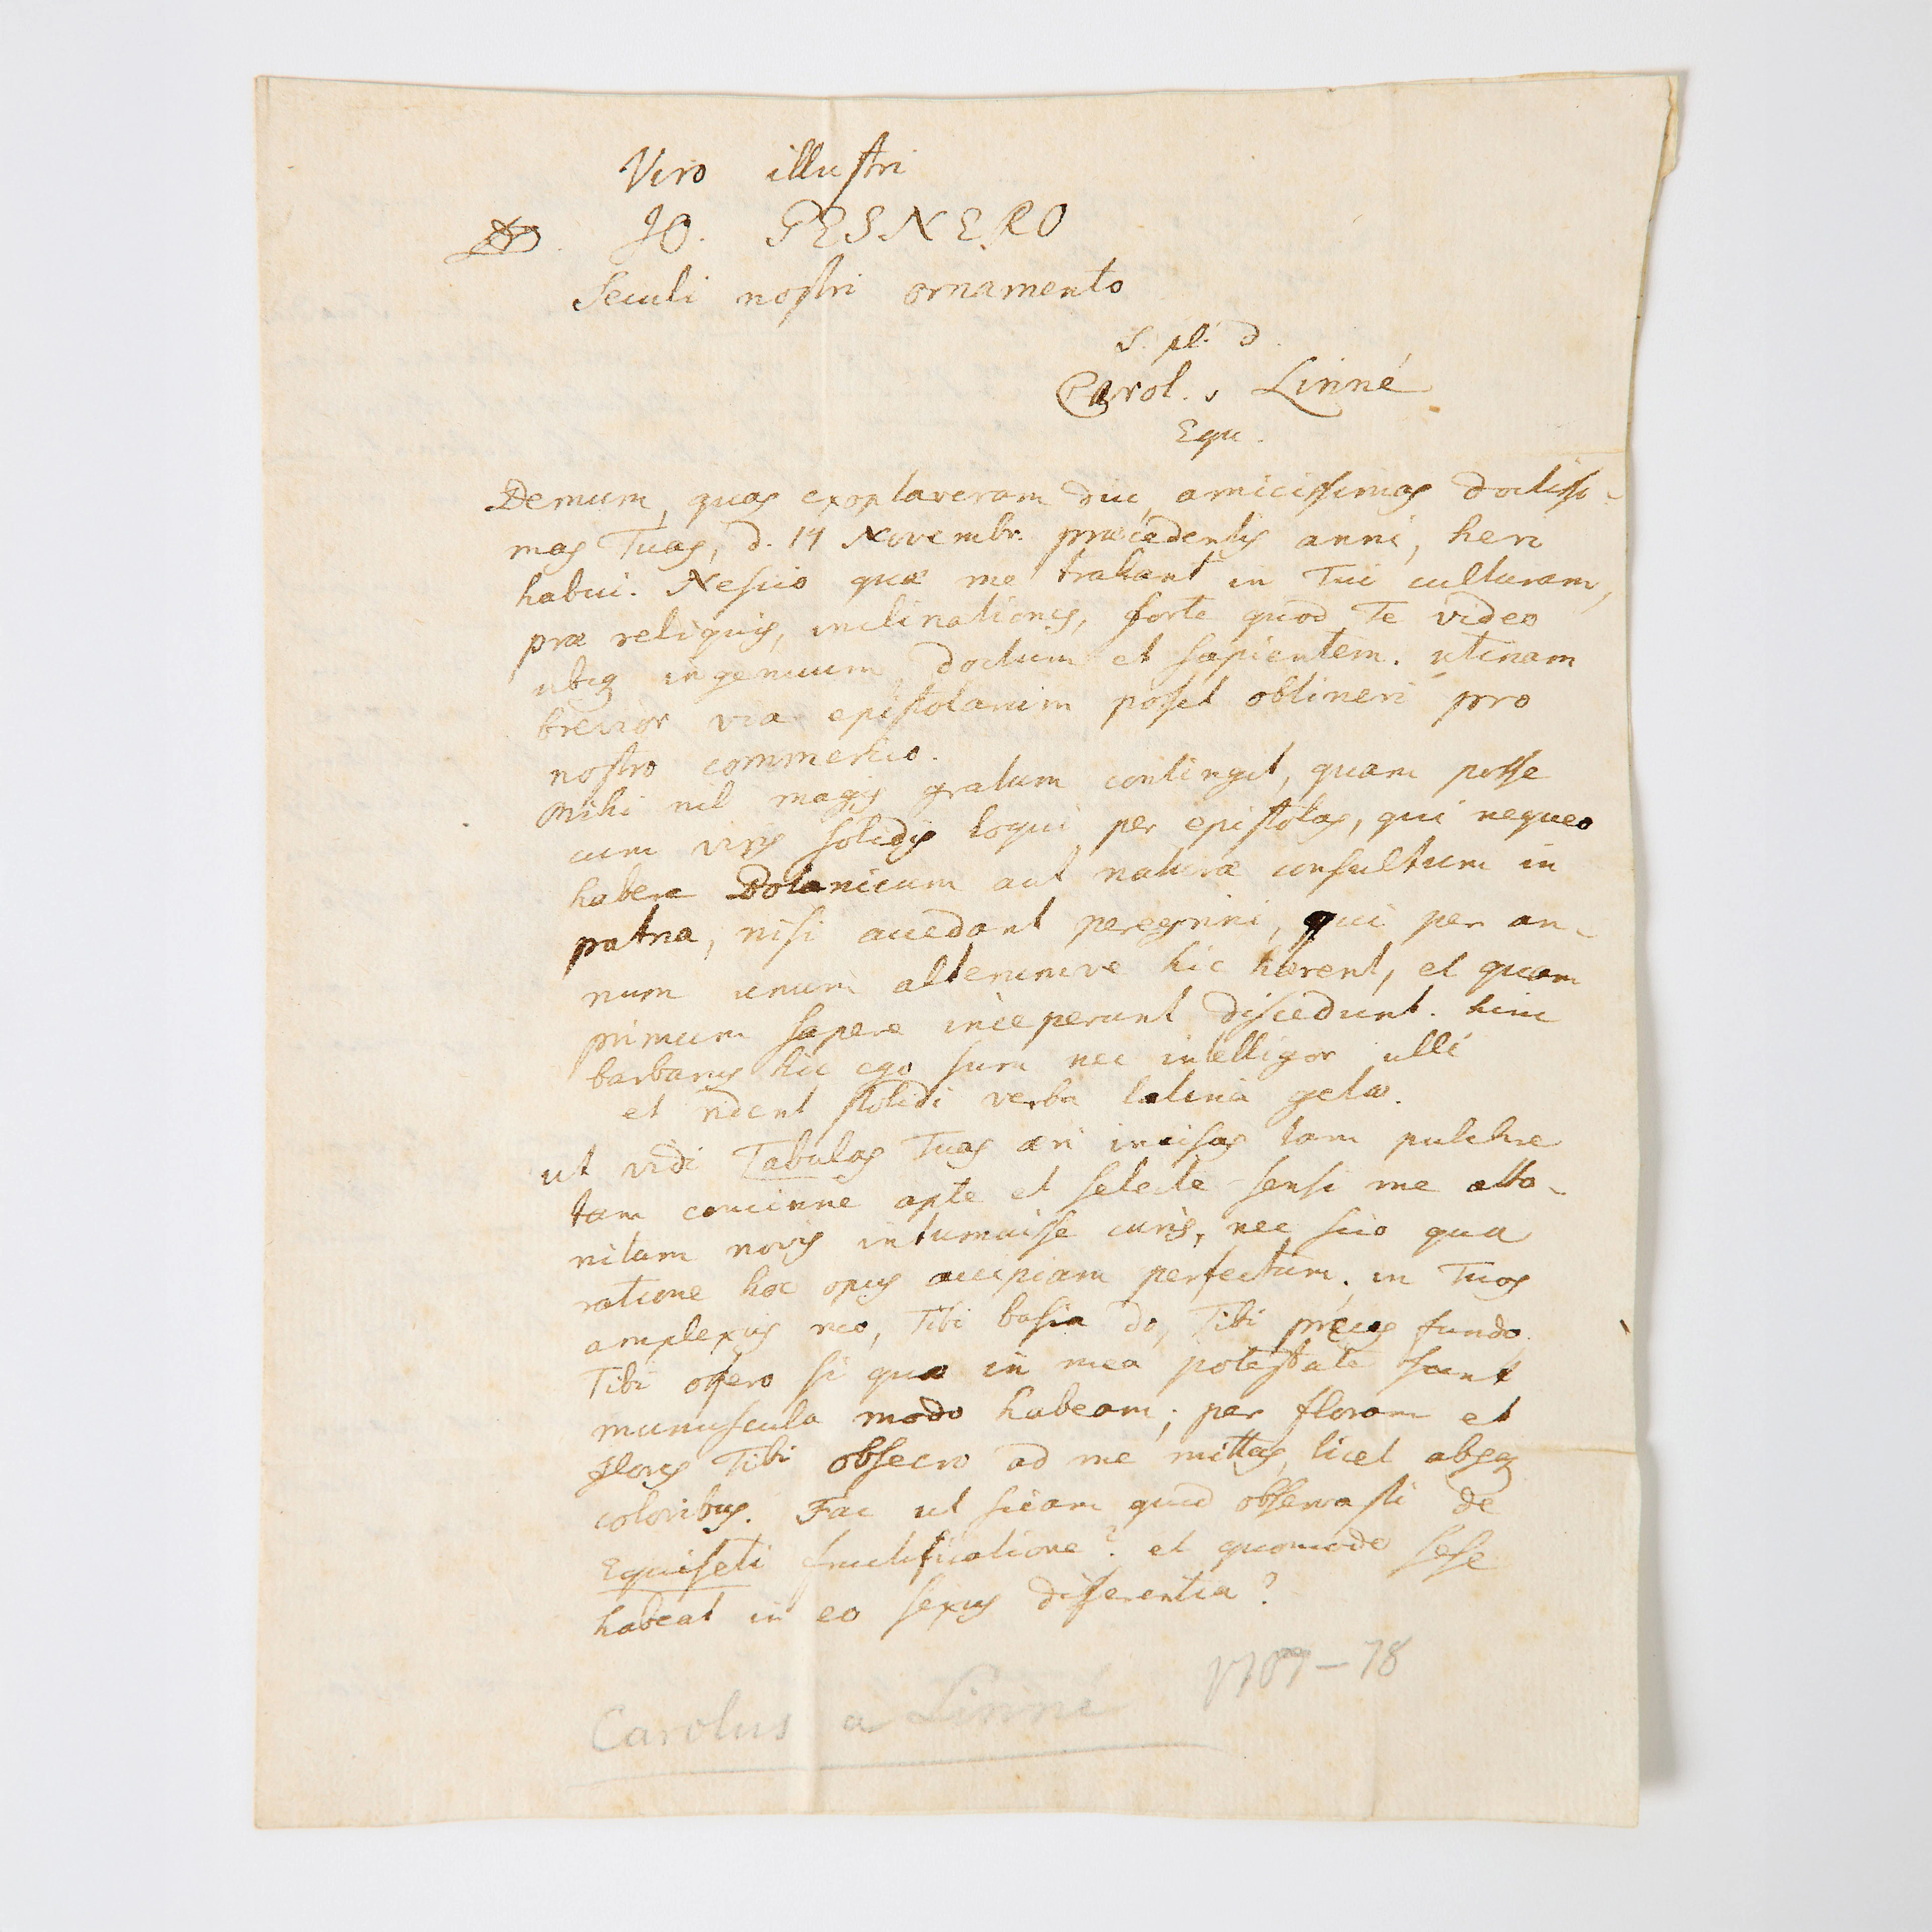 Viro illustri
JO. GESNERO
Seculi nostri ornamento
S. pl. d.
Carol. v Linné
Equ.
Demum, quas exoptaveram diu, amicissimas doctissi-
mas Tuas, d. 14 Novembr. præcedentis anni, heri
habui. Nescio quæ me trahant in Tui culturam,
præ reliquis, inclinationes, forte quod Te video
ubiq ingenuum doctum et sapientem. utinam
brevior via epistolarum posset obtineri pro
nostro commercio.
Mihi nil magis gratum contingit, quam posse
cum viris solidis loqui per epistolas, qui nequeo
habere Botanicum aut naturæ consultum in
patria, nisi accedant peregrini, qui per an-
num unum alterumve hic hærent, et quam
primum sapere inceperunt discedunt. hinc
barbarus hic ego sum nec intelligor ulli
et rident stolidi verba latina getæ.
ut vidi Tabulas Tuas æri incisas tam pulchre
tam concinne apte et selecte sensi me atto-
nitum novis intumuisse curis, nec scio qua
ratione hoc opus accipiam perfectum. in Tuos
amplexus reo, Tibi basia do, Tibi preces fundo
Tibi offero si quæ in mea potestate sunt
munuscula modo habeam; per floram et
flores Tibi obsecro ad me mittas, licet absq
coloribus. Fac ut sciam quid observasti de
Equiseti fructificatione? et quomodo sese
habeat in eo sexus differentia?
1707-78
Carolus a Linné